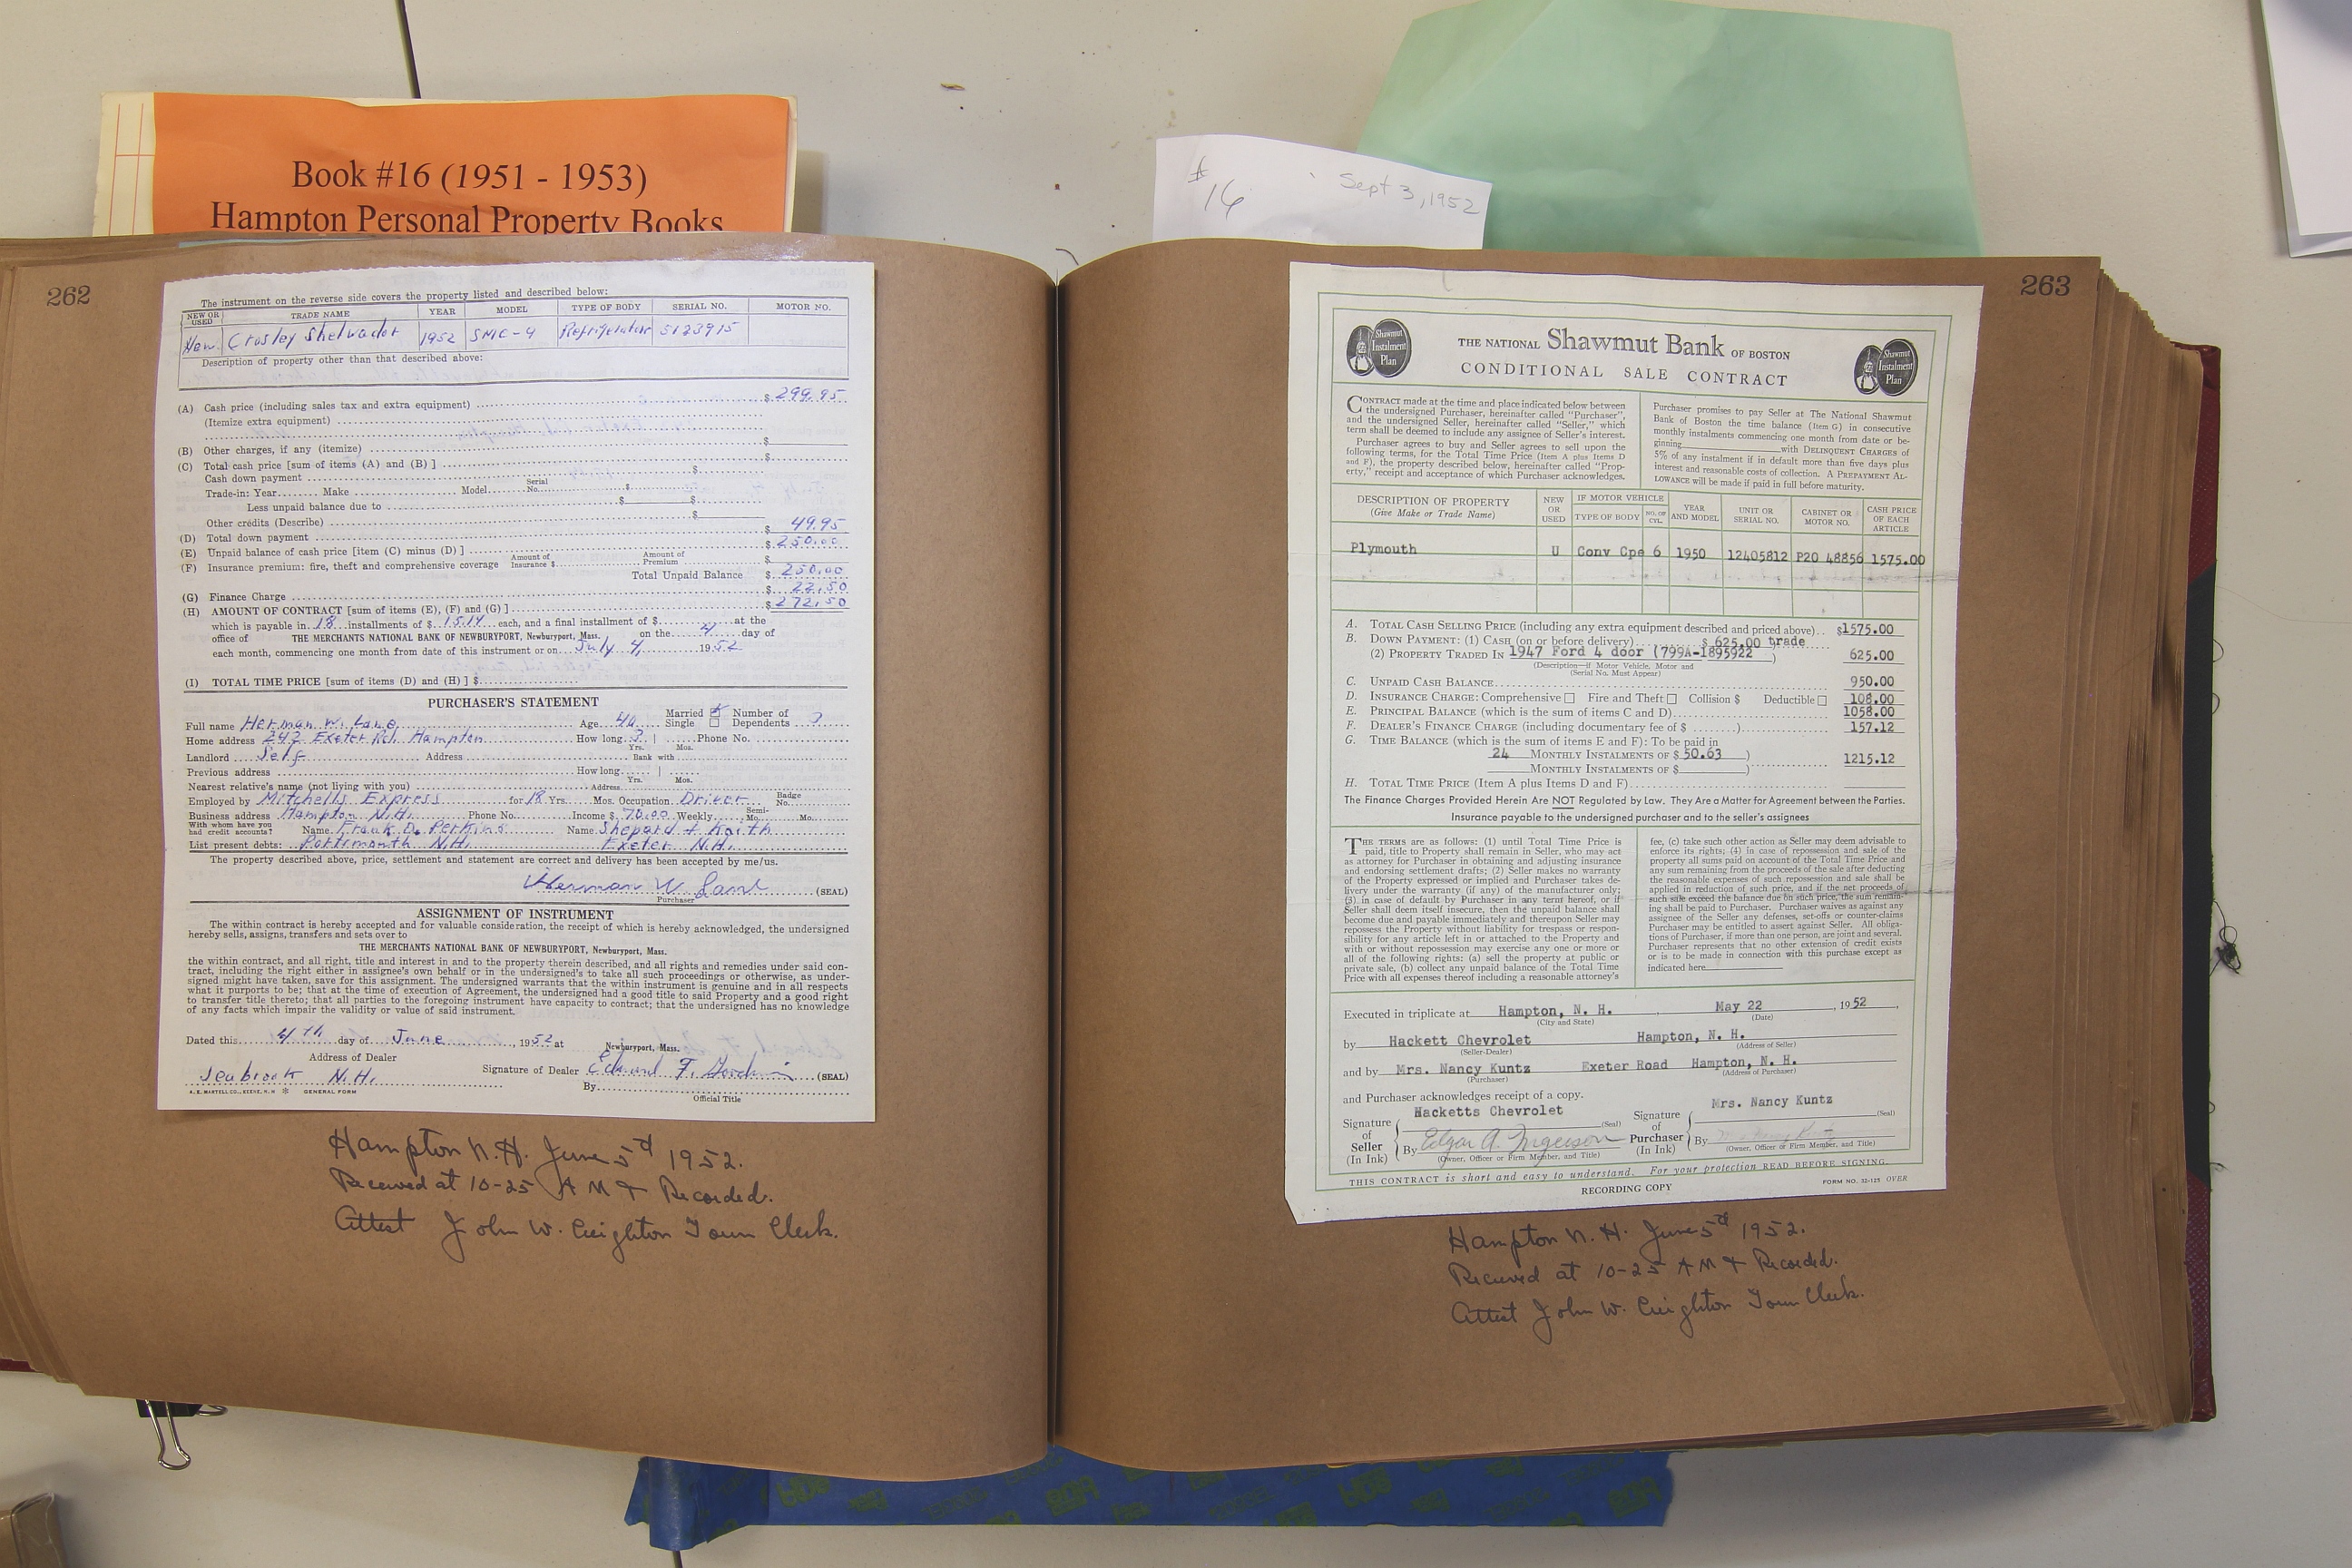 Book #16 (1951 - 1953)
Hampton Personal Property Books
$ 16
Sept 3, 1952
262
The instrument on the reverse side covers the property listed and described below:
NEW OR USED TRADE NAME YEAR MODEL TYPE OF BODY SERIAL NO. MOTOR NO.
New Crosley Shelvador 1952 SMC-9 Refrigerator 5123915
Description of property other than that described above:
(A) Cash price (including sales tax and extra equipment) $ 299.95
(Itemize extra equipment)
$
(B) Other charges, if any (itemize) $
(C) Total cash price [sum of items (A) and (B) ]
Cash down payment $
Trade-in: Year Make Model Serial No. $
Less unpaid balance due to $ $
Other credits (Describe) $
(D) Total down payment $ 49.95
(E) Unpaid balance of cash price [item (C) minus (D) ] $ 250.00
(F) Insurance premium: fire, theft and comprehensive coverage Amount of Insurance $ Amount of Premium $
Total Unpaid Balance $ 250.00
(G) Finance Charge $ 22.50
(H) AMOUNT OF CONTRACT [sum of items (E), (F) and (G) ] $ 272.50
which is payable in 18 installments of $ 15.14 each, and a final installment of $ at the
office of THE MERCHANTS NATIONAL BANK OF NEWBURYPORT, Newburyport, Mass. on the 4 day of
each month, commencing one month from date of this instrument or on July 4, 1952
(I) TOTAL TIME PRICE [sum of items (D) and (H) ] $
PURCHASER'S STATEMENT
Full name Herman W. Lane Age 40 Married Single Number of Dependents 3
Home address 242 Exeter Rd. Hampton How long 3 Yrs. Mos. Phone No.
Landlord Self Address Bank with
Previous address How long Yrs. Mos.
Nearest relative's name (not living with you) Address
Employed by Mitchells Express for 18 Yrs. Mos. Occupation Driver Badge No.
Business address Hampton N.H. Phone No. Income $ 70.00 Weekly Semi-Mo. Mo.
With whom have you had credit accounts? Name Frank D. Perkins Name Shepard + Kaith
List present debts: Portsmouth N.H. Exeter N.H.
The property described above, price, settlement and statement are correct and delivery has been accepted by me/us.
Herman W. Lane (SEAL)
Purchaser
ASSIGNMENT OF INSTRUMENT
The within contract is hereby accepted and for valuable consideration, the receipt of which is hereby acknowledged, the undersigned
hereby sells, assigns, transfers and sets over to
THE MERCHANTS NATIONAL BANK OF NEWBURYPORT, Newburyport, Mass.
the within contract, and all right, title and interest in and to the property therein described, and all rights and remedies under said con-
tract, including the right either in assignee's own behalf or in the undersigned's to take all such proceedings or otherwise, as under-
signed might have taken, save for this assignment. The undersigned warrants that the within instrument is genuine and in all respects
what it purports to be; that at the time of execution of Agreement, the undersigned had a good title to said Property and a good right
to transfer title thereto; that all parties to the foregoing instrument have capacity to contract; that the undersigned has no knowledge
of any facts which impair the validity or value of said instrument.
Dated this 4th day of June, 1952 at Newburyport, Mass.
Address of Dealer
Seabrook N.H. Signature of Dealer Edward F. (SEAL)
By
Official Title
A. E. MARTELL CO., KEENE, N. H. * GENERAL FORM
Hampton N.H. June 5th 1952.
Received at 10-25 AM & Recorded.
Attest John W. Creighton Town Clerk.
263
Shawmut Instalment Plan
THE NATIONAL Shawmut Bank OF BOSTON
CONDITIONAL SALE CONTRACT
Shawmut Instalment Plan
CONTRACT made at the time and place indicated below between
the undersigned Purchaser, hereinafter called "Purchaser",
and the undersigned Seller, hereinafter called "Seller," which
term shall be deemed to include any assignee of Seller's interest.
Purchaser agrees to buy and Seller agrees to sell upon the
following terms, for the Total Time Price (Item A plus Items D
and F), the property described below, hereinafter called "Prop-
erty," receipt and acceptance of which Purchaser acknowledges.
Purchaser promises to pay Seller at The National Shawmut
Bank of Boston the time balance (Item G) in consecutive
monthly instalments commencing one month from date or be-
ginning with DELINQUENT CHARGES of
5% of any instalment if in default more than five days plus
interest and reasonable costs of collection. A PREPAYMENT AL-
LOWANCE will be made if paid in full before maturity.
DESCRIPTION OF PROPERTY (Give Make or Trade Name) NEW OR USED IF MOTOR VEHICLE TYPE OF BODY NO. OF CYL. YEAR AND MODEL UNIT OR SERIAL NO. CABINET OR MOTOR NO. CASH PRICE OF EACH ARTICLE
Plymouth U Conv Cpe 6 1950 12405812 P20 48856 1575.00
A. TOTAL CASH SELLING PRICE (including any extra equipment described and priced above) $1575.00
B. DOWN PAYMENT: (1) CASH (on or before delivery) $ 625.00 trade
(2) PROPERTY TRADED IN 1947 Ford 4 door (799A-1895922 ) 625.00
(Description—if Motor Vehicle, Motor and Serial No. Must Appear)
C. UNPAID CASH BALANCE 950.00
D. INSURANCE CHARGE: Comprehensive Fire and Theft Collision $ Deductible 108.00
E. PRINCIPAL BALANCE (which is the sum of items C and D) 1058.00
F. DEALER'S FINANCE CHARGE (including documentary fee of $ ) 157.12
G. TIME BALANCE (which is the sum of items E and F): To be paid in
24 MONTHLY INSTALMENTS OF $ 50.63 ) 1215.12
MONTHLY INSTALMENTS OF $ )
H. TOTAL TIME PRICE (Item A plus Items D and F)
The Finance Charges Provided Herein Are NOT Regulated by Law. They Are a Matter for Agreement between the Parties.
Insurance payable to the undersigned purchaser and to the seller's assignees
THE TERMS are as follows: (1) until Total Time Price is
paid, title to Property shall remain in Seller, who may act
as attorney for Purchaser in obtaining and adjusting insurance
and endorsing settlement drafts; (2) Seller makes no warranty
of the Property expressed or implied and Purchaser takes de-
livery under the warranty (if any) of the manufacturer only;
(3) in case of default by Purchaser in any term hereof, or if
Seller shall deem itself insecure, then the unpaid balance shall
become due and payable immediately and thereupon Seller may
repossess the Property without liability for trespass or respon-
sibility for any article left in or attached to the Property and
with or without repossession may exercise any one or more or
all of the following rights: (a) sell the property at public or
private sale, (b) collect any unpaid balance of the Total Time
Price with all expenses thereof including a reasonable attorney's
fee, (c) take such other action as Seller may deem advisable to
enforce its rights; (4) in case of repossession and sale of the
property all sums paid on account of the Total Time Price and
any sum remaining from the proceeds of the sale after deducting
the reasonable expenses of such repossession and sale shall be
applied in reduction of such price, and if the net proceeds of
such sale exceed the balance due on such price, the sum remain-
ing shall be paid to Purchaser. Purchaser waives as against any
assignee of the Seller any defenses, set-offs or counter-claims
Purchaser may be entitled to assert against Seller. All obliga-
tions of Purchaser, if more than one person, are joint and several.
Purchaser represents that no other extension of credit exists
or is to be made in connection with this purchase except as
indicated here
Executed in triplicate at Hampton, N. H. May 22, 1952,
(City and State) (Date)
by Hackett Chevrolet Hampton, N. H.
(Seller-Dealer) (Address of Seller)
and by Mrs. Nancy Kuntz Exeter Road Hampton, N. H.
(Purchaser) (Address of Purchaser)
and Purchaser acknowledges receipt of a copy.
Hacketts Chevrolet Mrs. Nancy Kuntz
Signature of Seller (In Ink) (Seal) By Edgar A. Ingerson (Owner, Officer or Firm Member, and Title)
Signature of Purchaser (In Ink) (Seal) By Mrs Nancy Kuntz (Owner, Officer or Firm Member, and Title)
THIS CONTRACT is short and easy to understand. For your protection READ BEFORE SIGNING.
RECORDING COPY FORM NO. 32-125 OVER
Hampton N. H. June 5th 1952.
Recieved at 10-25 AM & Recorded.
Attest John W. Creighton Town Clerk.